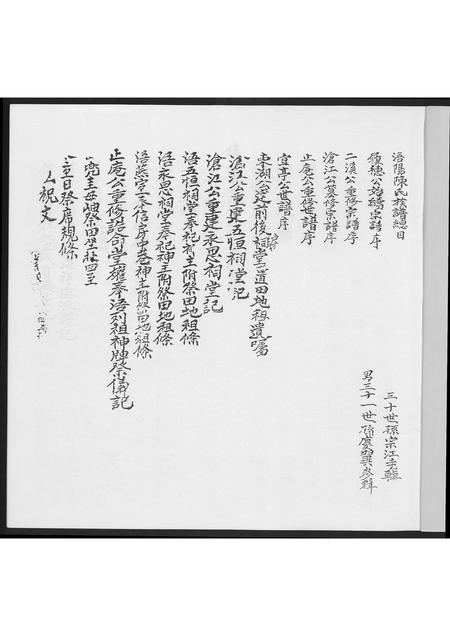 浯陽陳氏族譜總目
履穗公始續宗譜序
二溪公重修宗譜序
滄江公纂修宗譜序
止庵公重修世譜序
宜亭公世譜序
東湖公建前後祠堂二道田地租遺囑
滄江公重建五恒祠堂記
滄江公重建永思祠堂記
浯五恒祠堂奉祀神主附祭田地租條
浯永思祠堂奉祀神主附祭田地租條
浯燕堂一奉信房中巷神主附祭田地租條
止庵公重修詒命堂奉浯列祖神牌祭儀記
祭田坐址四至
至日祭席規條
祝文
三十世孫宗江手
男三十一世孫慶翼參輯